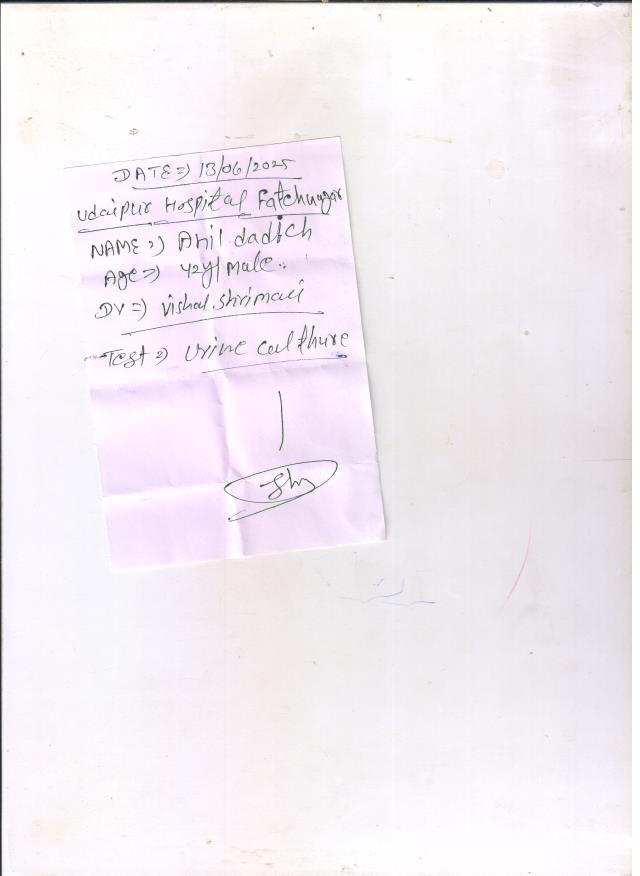 DATE=) 13/06/2025
Udaipur Hospital Fatehnagar
NAME:) Anil dadich
Age=) 42y/male..
Dr=) Vishal.Shrimali
Test=) Urine culthure